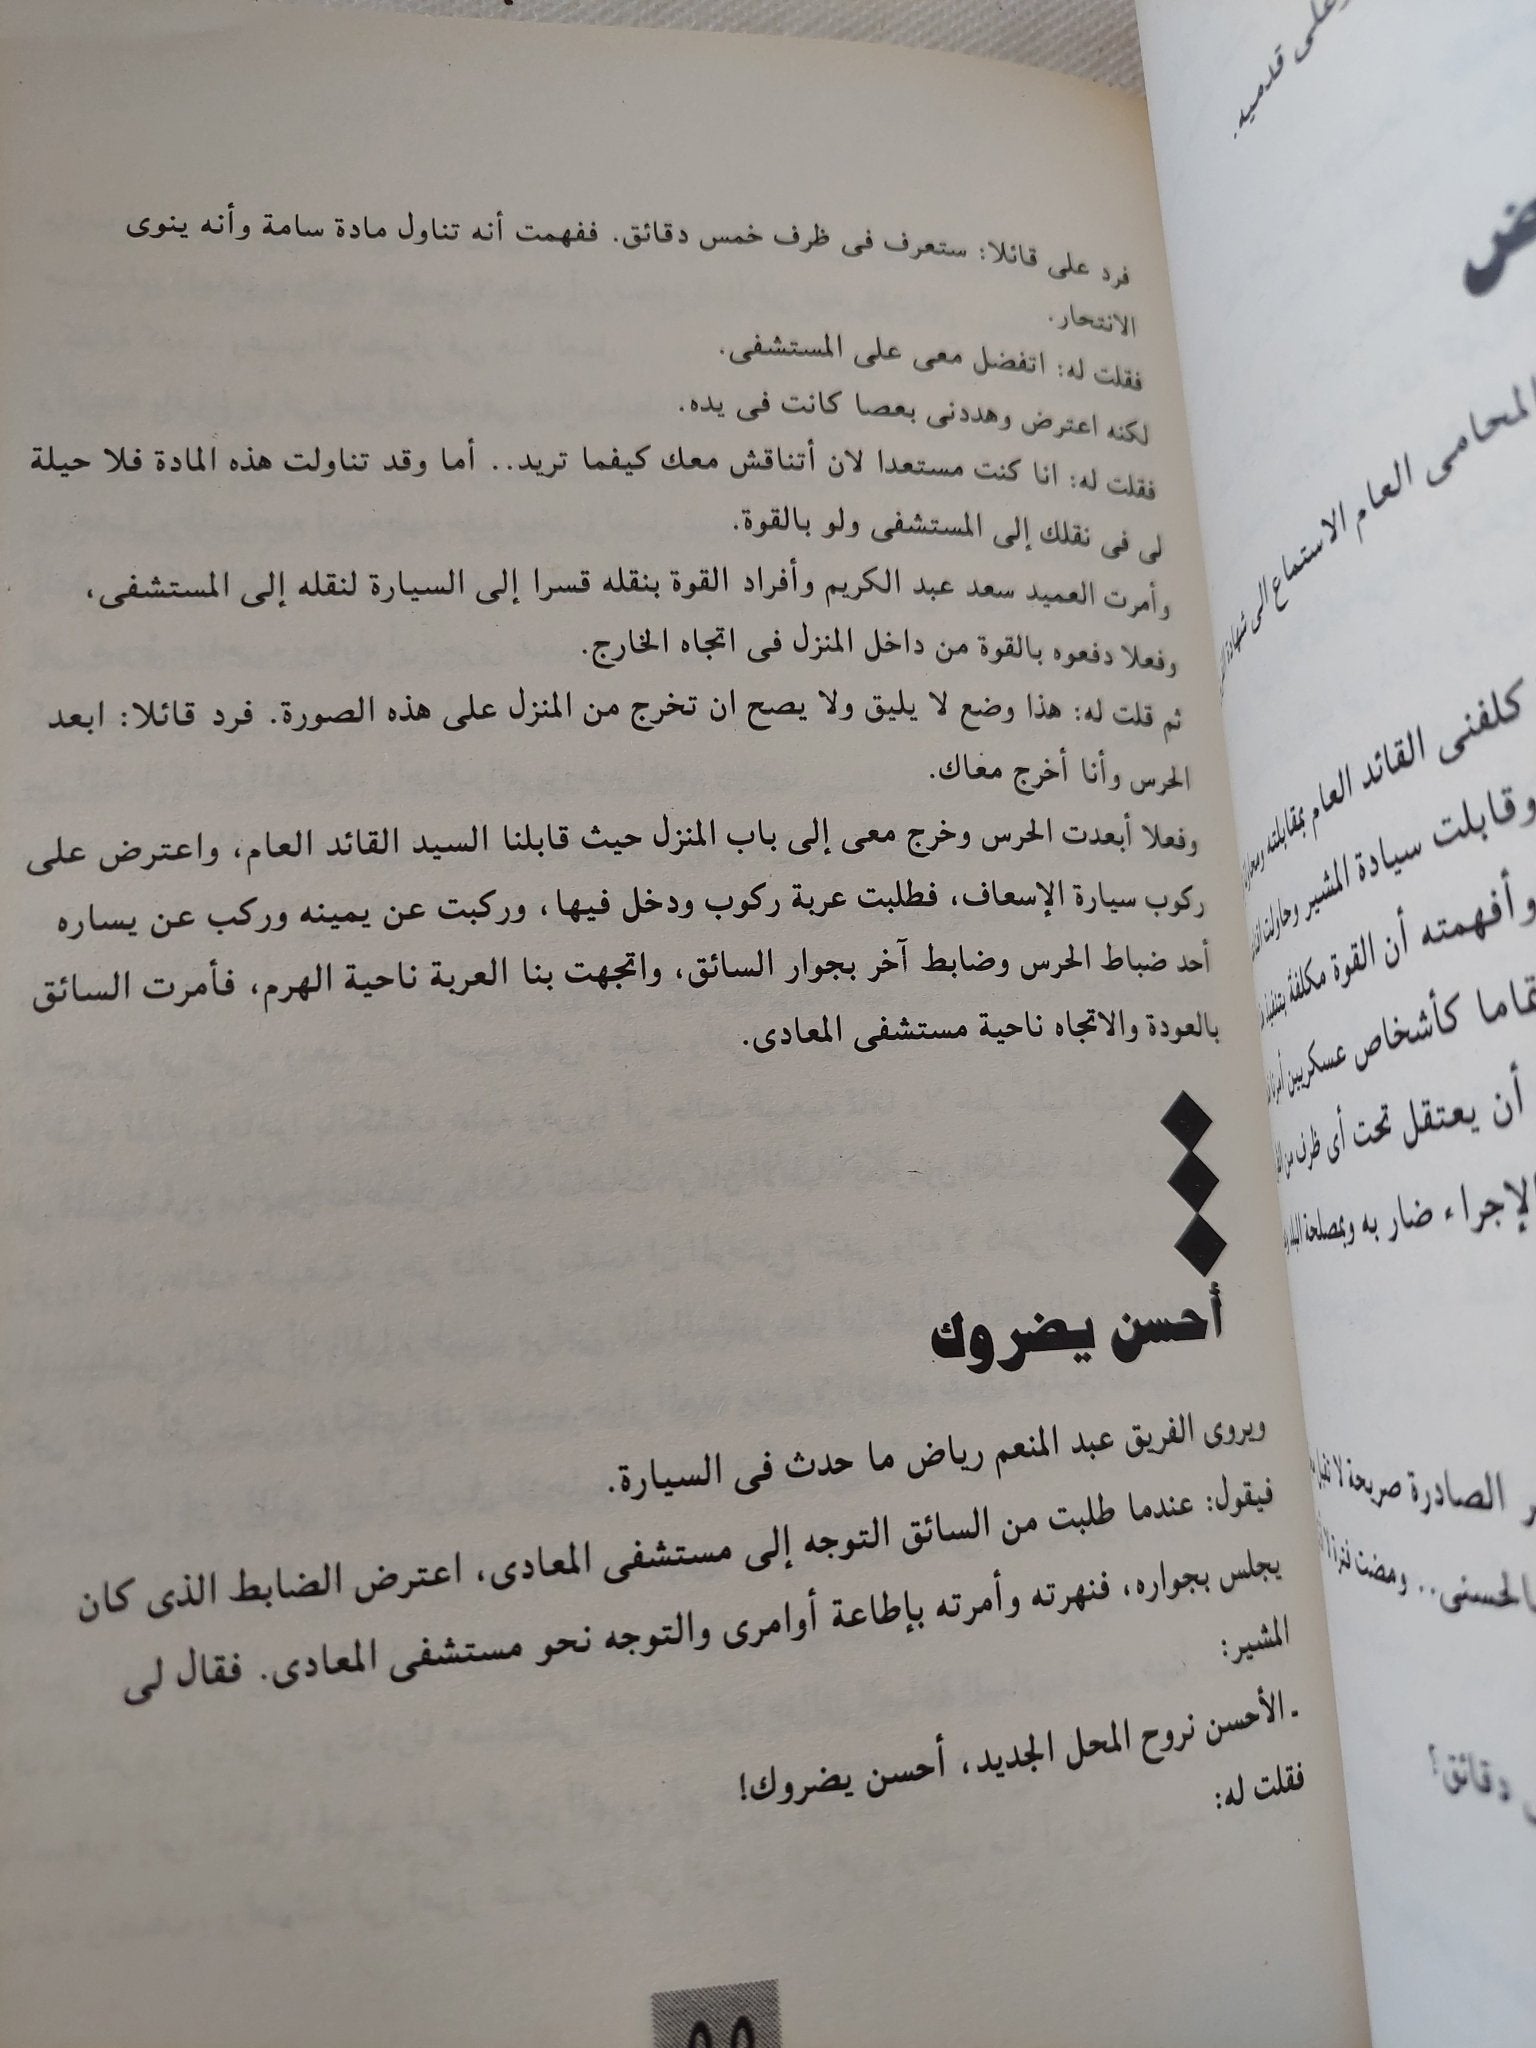 وعلى قدميه.
المحامى العام الاستماع الى شهادة
كلفنى القائد العام بمقابلته
وقابلت سيادة المشير وحاولت
وأفهمته أن القوة مكلفة بتنفيذ
تماما كأشخاص عسكريين أمرنا
أن يعتقل تحت أى ظرف من
الإجراء ضار به وبمصلحة البلاد
الصادرة صريحة لا
بالحسنى.. ومضت فترة لا
دقائق!
فرد على قائلا: ستعرف فى ظرف خمس دقائق. ففهمت أنه تناول مادة سامة وأنه ينوى
الانتحار.
فقلت له: اتفضل معى على المستشفى.
لكنه اعترض وهددنى بعصا كانت فى يده.
فقلت له: انا كنت مستعدا لان أتناقش معك كيفما تريد.. أما وقد تناولت هذه المادة فلا حيلة
لى فى نقلك إلى المستشفى ولو بالقوة.
وأمرت العميد سعد عبد الكريم وأفراد القوة بنقله قسرا إلى السيارة لنقله إلى المستشفى،
وفعلا دفعوه بالقوة من داخل المنزل فى اتجاه الخارج.
ثم قلت له: هذا وضع لا يليق ولا يصح ان تخرج من المنزل على هذه الصورة. فرد قائلا: ابعد
الحرس وأنا أخرج معاك.
وفعلا أبعدت الحرس وخرج معى إلى باب المنزل حيث قابلنا السيد القائد العام، واعترض على
ركوب سيارة الإسعاف، فطلبت عربة ركوب ودخل فيها، وركبت عن يمينه وركب عن يساره
أحد ضباط الحرس وضابط آخر بجوار السائق، واتجهت بنا العربة ناحية الهرم، فأمرت السائق
بالعودة والاتجاه ناحية مستشفى المعادى.
أحسن يضروك
ويروى الفريق عبد المنعم رياض ما حدث فى السيارة.
فيقول: عندما طلبت من السائق التوجه إلى مستشفى المعادى، اعترض الضابط الذى كان
يجلس بجواره، فنهرته وأمرته بإطاعة أوامرى والتوجه نحو مستشفى المعادى. فقال لى
المشير:
- الأحسن نروح المحل الجديد، أحسن يضروك!
فقلت له: